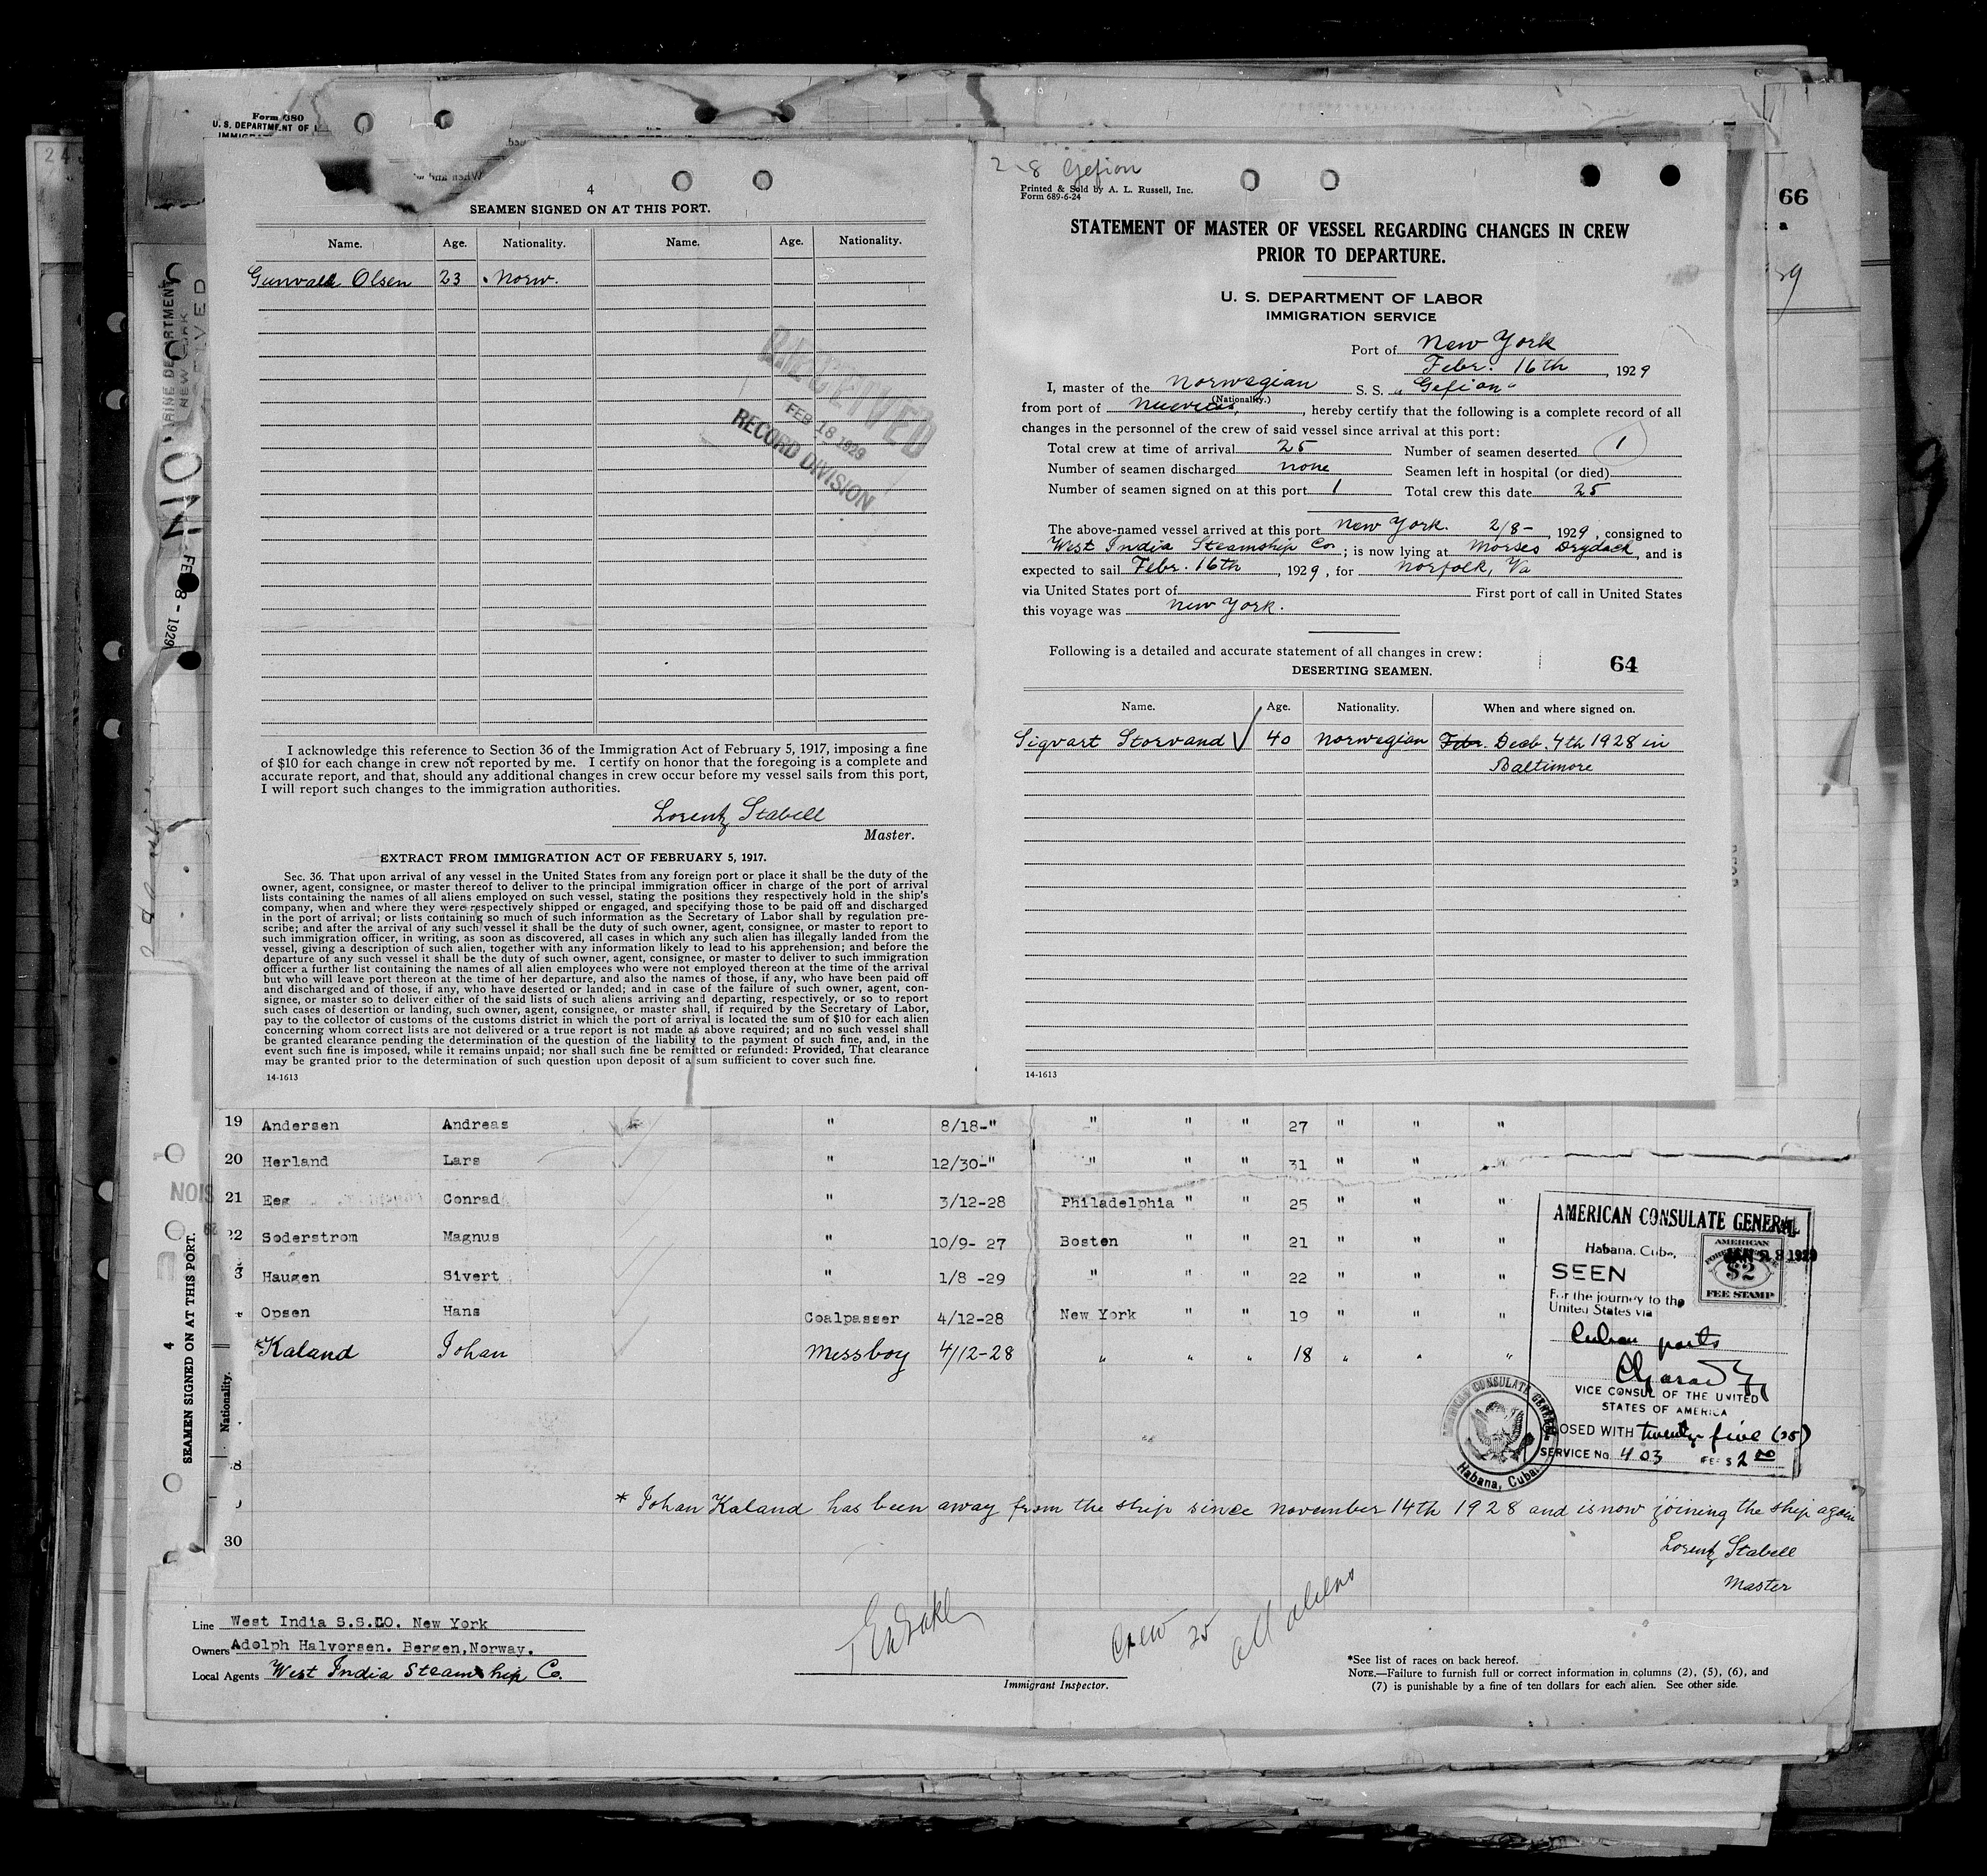 24
Form 680
U. S. DEPARTMENT OF
66
a
4
SEAMEN SIGNED ON AT THIS PORT.
Name. Age. Nationality. Name. Age. Nationality.
Gunvald Olsen 23 Norw.
RECEIVED
FEB 18 1929
RECORD DIVISION
I acknowledge this reference to Section 36 of the Immigration Act of February 5, 1917, imposing a fine
of $10 for each change in crew not reported by me. I certify on honor that the foregoing is a complete and
accurate report, and that, should any additional changes in crew occur before my vessel sails from this port,
I will report such changes to the immigration authorities.
Lorentz Stabell
Master.
EXTRACT FROM IMMIGRATION ACT OF FEBRUARY 5, 1917.
Sec. 36. That upon arrival of any vessel in the United States from any foreign port or place it shall be the duty of the
owner, agent, consignee, or master thereof to deliver to the principal immigration officer in charge of the port of arrival
lists containing the names of all aliens employed on such vessel, stating the positions they respectively hold in the ship's
company, when and where they were respectively shipped or engaged, and specifying those to be paid off and discharged
in the port of arrival; or lists containing so much of such information as the Secretary of Labor shall by regulation pre-
scribe; and after the arrival of any such vessel it shall be the duty of such owner, agent, consignee, or master to report to
such immigration officer, in writing, as soon as discovered, all cases in which any such alien has illegally landed from the
vessel, giving a description of such alien, together with any information likely to lead to his apprehension; and before the
departure of any such vessel it shall be the duty of such owner, agent, consignee, or master to deliver to such immigration
officer a further list containing the names of all alien employees who were not employed thereon at the time of the arrival
but who will leave port thereon at the time of her departure, and also the names of those, if any, who have been paid off
and discharged and of those, if any, who have deserted or landed; and in case of the failure of such owner, agent, con-
signee, or master so to deliver either of the said lists of such aliens arriving and departing, respectively, or so to report
such cases of desertion or landing, such owner, agent, consignee, or master shall, if required by the Secretary of Labor,
pay to the collector of customs of the customs district in which the port of arrival is located the sum of $10 for each alien
concerning whom correct lists are not delivered or a true report is not made as above required; and no such vessel shall
be granted clearance pending the determination of the question of the liability to the payment of such fine, and, in the
event such fine is imposed, while it remains unpaid; nor shall such fine be remitted or refunded: Provided, That clearance
may be granted prior to the determination of such question upon deposit of a sum sufficient to cover such fine.
14-1613
2-8 Gefion
Printed & Sold by A. L. Russell, Inc.
Form 689-6-24
STATEMENT OF MASTER OF VESSEL REGARDING CHANGES IN CREW
PRIOR TO DEPARTURE.
U. S. DEPARTMENT OF LABOR
IMMIGRATION SERVICE
Port of New York
Febr. 16th, 1929
I, master of the Norwegian S. S. "Gefion"
(Nationality.)
from port of Nuevitas, hereby certify that the following is a complete record of all
changes in the personnel of the crew of said vessel since arrival at this port:
Total crew at time of arrival 25 Number of seamen deserted 1
Number of seamen discharged none Seamen left in hospital (or died)
Number of seamen signed on at this port 1 Total crew this date 25
The above-named vessel arrived at this port New York. 2/8-, 1929, consigned to
West India Steamship Co; is now lying at Morses Drydock, and is
expected to sail Febr. 16th, 1929, for Norfolk, Va
via United States port of First port of call in United States
this voyage was New York.
Following is a detailed and accurate statement of all changes in crew:
64
DESERTING SEAMEN.
Name. Age. Nationality. When and where signed on.
Sigvart Storvand 40 Norwegian Febr. Decb. 4th 1928 in
Baltimore
14-1613
19 Andersen Andreas " 8/18-" " " " 27 " " "
20 Herland Lars " 12/30-" " " " 31 " " "
21 Eeg Conrad " 3/12-28 Philadelphia " " 25 " " "
22 Soderstrom Magnus " 10/9- 27 Bosten " " 21 " " "
3 Haugen Sivert " 1/8 -29 " " " 22 " " "
Opsen Hans Coalpasser 4/12-28 New York " " 19 " " "
*Kaland Johan Messboy 4/12-28 " " " 18 " " "
8
30
* Johan Kaland has been away from the ship since november 14th 1928 and is now joining the ship again
Lorentz Stabell
Master
AMERICAN CONSULATE GENERAL
Habana, Cuba,
JAN 28 1929
SEEN
For the journey to the
United States via
Cuban ports
VICE CONSUL OF THE UNITED
STATES OF AMERICA
OSED WITH twenty five (25)
SERVICE No. 403 FEE $ 2 00
AMERICAN
$2
FEE STAMP
AMERICAN CONSULATE GENERAL
Habana, Cuba.
Line West India S.S.CO. New York
Owners Adolph Halvorsen. Bergen, Norway.
Local Agents West India Steamship Co.
Immigrant Inspector.
Crew 25 all aliens
*See list of races on back hereof.
NOTE.—Failure to furnish full or correct information in columns (2), (5), (6), and
(7) is punishable by a fine of ten dollars for each alien. See other side.
SEAMEN SIGNED ON AT THIS PORT.
4
Nationality.
FEB 8 - 1929